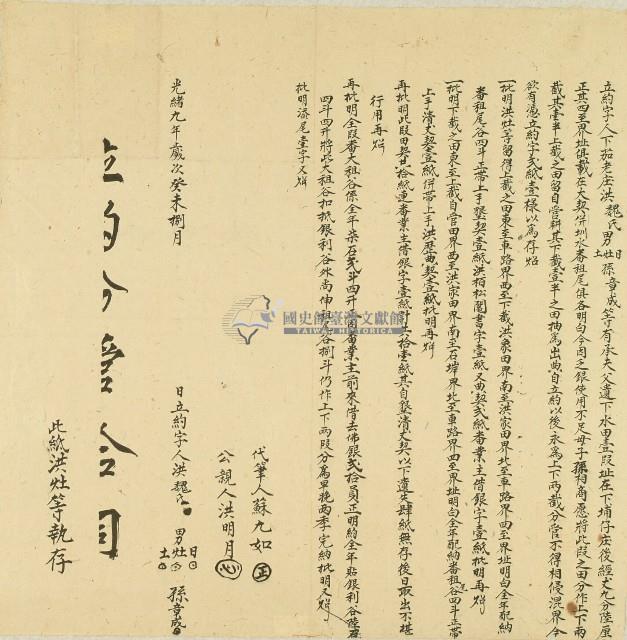 立約字人下茄老庄洪魏氏男日灶土孫章成等有承夫父遺下水田壹段址在下埔仔庄後經丈九分陸厘
正其四至界址俱載在大契併圳水番租尾俱各明白今因乏銀使用不足母子孫相商愿將此段之田分作上下兩
截其壹半上截之田留自營耕其下截壹半之田抽為出典自立約以後永為上下兩截分管不得相侵混界今
欲有憑立約字弍紙壹樣以為存炤
一批明洪灶等留得上截之田東至車路界西至下截洪家田界南至洪家田界北至車路界四至界址明白全年配納
番租尾谷四斗正帶上手墾契壹紙洪栢松鬮書字壹紙又典契弍紙番業主借銀字壹紙批明再炤
一批明下截之田東至上截自營田界西至洪家田界南至石埒界北至車路界四至界址明白全年配納番租谷四斗正帶
上手清丈契壹紙併帶上手洪歷典契壹紙批明再炤
再批明此段田契共拾紙連番業主借銀字壹紙計共拾壹紙其自錄清丈契以下遺失肆紙無存後日取出不堪
行用再炤
再批明全段番大租谷係全年柒石弍斗四升因番業主前來借去佛銀弍拾員正明約全年貼銀利谷陸石
四斗四升將此大租谷扣抵銀利谷外尚伸租谷捌斗仍作上下兩段分為早晚兩季完納批明又炤
批明添尾壹字又炤
代筆人蘇九如
公親人洪明月
光緒九年歲次癸未捌月　日立約字人洪魏氏
男日灶土
孫章成
立約分管合同
此紙洪灶等執存
國史館臺灣文獻館
TAIWAN HISTORICA